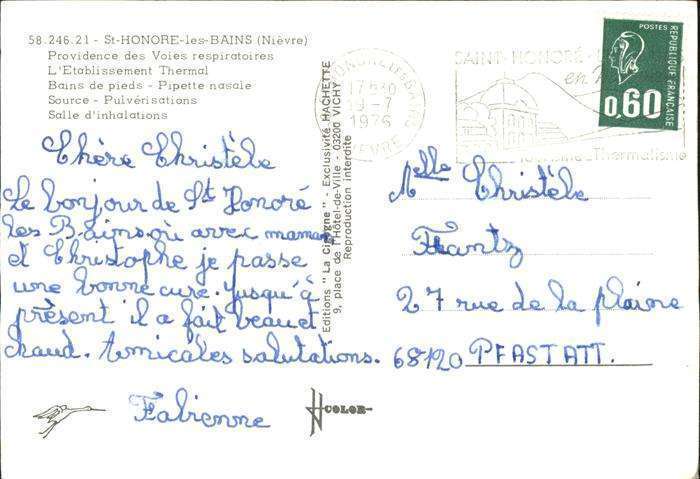 58.246.21 - St-HONORE-les-BAINS (Nièvre)
Providence des Voies respiratoires
L'Etablissement Thermal
Bains de pieds - Pipette nasale
Source - Pulvérisations
Salle d'inhalations
Chère Christèle
Le bonjour de St Honoré
les Bains où avec maman
et Christophe je passe
une bonne cure. Jusqu'à
présent il a fait beau et
chaud. Amicales salutations.
Fabienne
Editions "La Cigogne" - Exclusivité HACHETTE
9, place de l'Hôtel-de-Ville - 03200 VICHY
Reproduction interdite
COLOR
17H30
19-7
1976
NIEVRE
SAINT HONORÉ
en
Thermalisme
POSTES
REPUBLIQUE FRANÇAISE
0,60
Melle Christèle
Frantz
27 rue de la plaine
68120 PFASTATT.